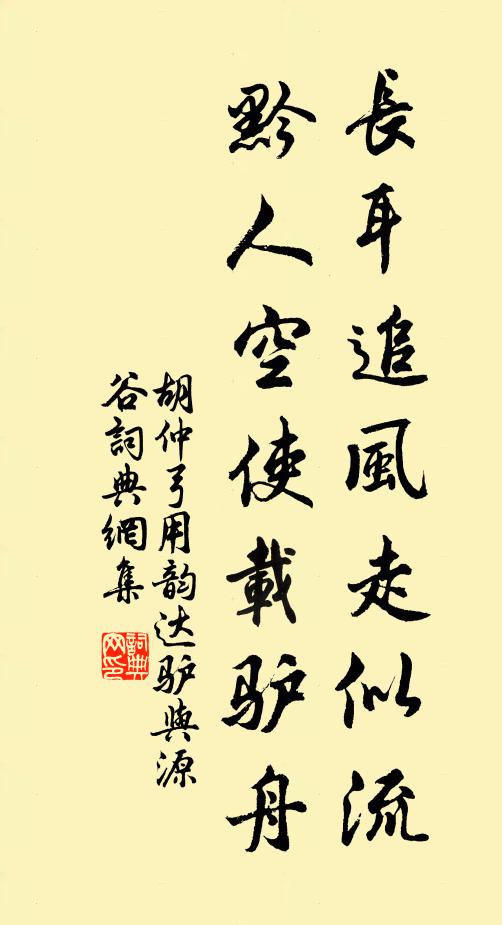 長耳追風走似流
黔人空使載驴舟
胡仲弓用韵达驴與源
谷詞典網集
詞典
网印